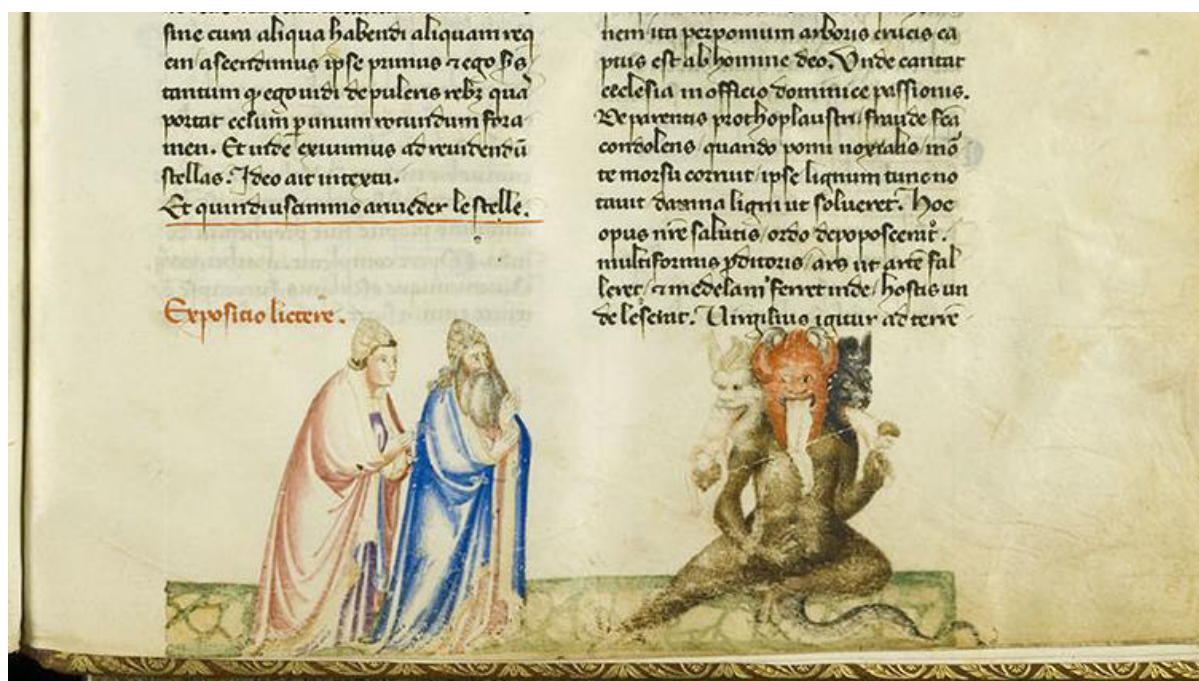 sine cura aliqua habendi aliquam req
em ascendimus ipse primus ⁊ ego ss
tantum ꝙ ego uidi de pulcris rebꝫ qua
portat celum ꝑ unum rotundum fora
men. Et inde exiuimus ad reuidendū
stellas. Ideo ait in textu.
Et quindi uscimmo a riueder le stelle.
Expositio lictere.
nem ita per pomum arboris crucis ca
ptus est ab homine deo. Vnde cantat
ecclesia in officio dominice passionis.
De parentis prothoplaustri fraude fca
condolens quando pomi noxialis mo
te morsu corruit ipse lignum tunc no
tauit danna ligni ut solueret. Hoc
opus nr̄e salutis ordo depoposcerat.
multiformis ꝓditoris ars ut artē fal
leret ⁊ medelam ferret inde hostis un
de leserat. Uirgilius igitur ad terre